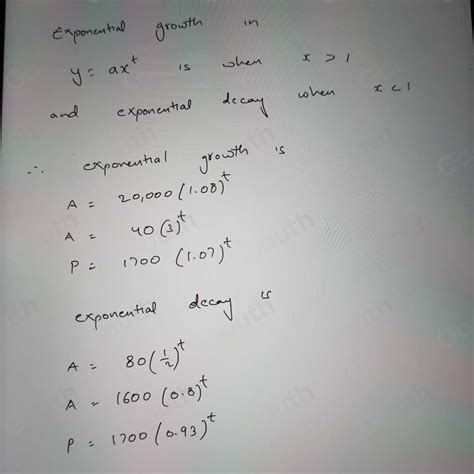 Exponential growth in
y = ax^t is when x > 1
and exponential decay when x < 1
∴ exponential growth is
A = 20,000 (1.08)^t
A = 40 (3)^t
P = 1700 (1.07)^t
exponential decay is
A = 80 (1/2)^t
A = 1600 (0.8)^t
P = 1700 (0.93)^t